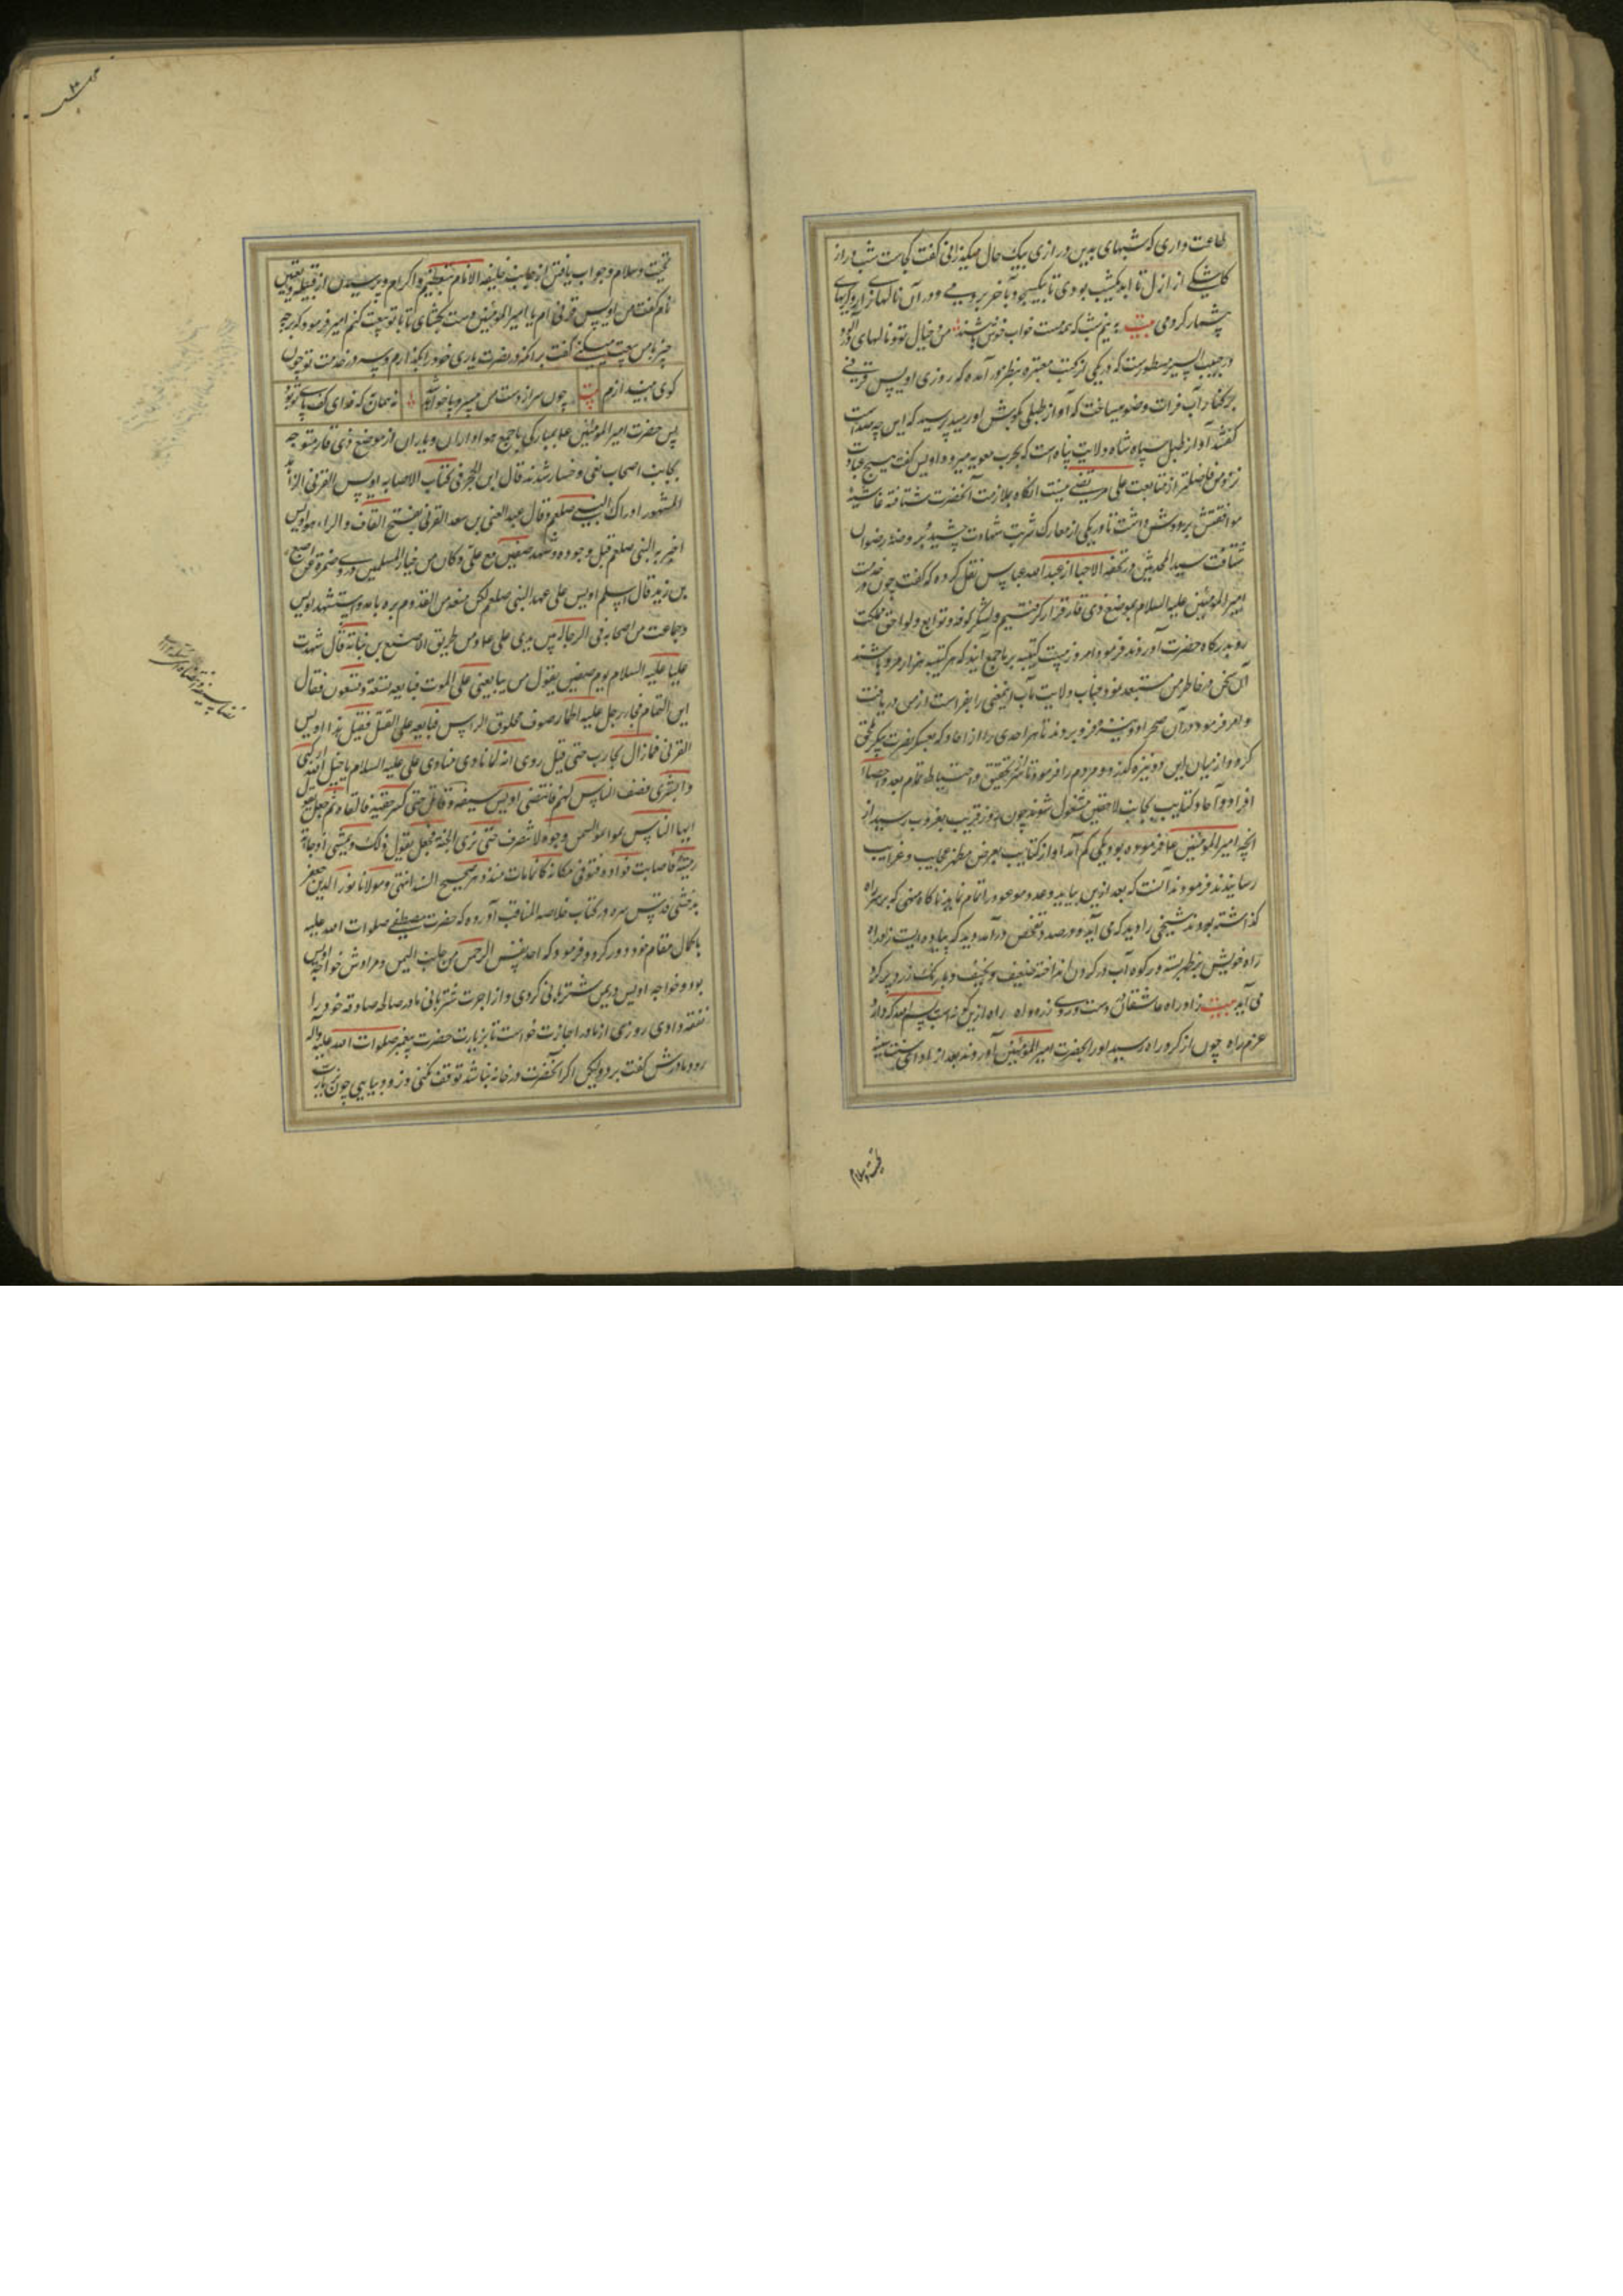 طاعت داری که شبهای بدین درازی بیک حال میگذرانی گفت کجاست شب دراز
کاشکی از ازل تا ابد یکشب بودی تا بیک سجود بآخر بردمی و در آن نالهای زار و گریهای
بیشمار کردمی بیت نیم شب که همه مست خواب خوش باشند من و خیال تو و نالهای
در حبیب السیر مسطورست که در یکی از کتب معتبره بنظر در آمده که روزی اویس قرنی
بر کنار آب فرات وضو میساخت که آواز طبلی بگوش او رسید پرسید که این چه صداست
گفتند آواز طبل سپاه شاه ولایت پناه است که بحرب معویه میرود اویس گفت هیچ عبادت
نزد من فاضلتر از متابعت علی مرتضی نیست آنگاه بملازمت آنحضرت شتافته غاشیه
موافقتش بر دوش داشت تا در یکی از معارک شربت شهادت چشید و بروضه رضوان
شتافت سید المحدثین در تحفة الاحبا از عبد الله عباس نقل کرده که گفت چون در خدمت
امیر المؤمنین علیه السلام بموضع ذی قار قرار گرفتیم و لشکر کوفه و توابع و لواحق مملکت
رو بدرگاه حضرت آوردند فرمود امروز بیست کتیبه بر ما جمع آیند که هر کتیبه هزار مرد باشند
این سخن در خاطر من مستبعد نمود جناب ولایت مآب اینمعنی را بفراست از من دریافت
و امر فرمود در آن صحرا دو نیزه فرو بردند تا هر احدی را از آحاد که بمعسکر نصرت پیکر ملحق
گردد از میان این دو نیزه گذرد و مردم را فرمود تا شرط تحقیق و احتیاط تمام بعد و احصا
افراد و آحاد کتایب بجانب لاحقین مشغول شوند چون روز قریب بغروب رسید از
آنچه امیر المؤمنین ع فرموده بود یکی کم آمد آواز کتایب بعرض مظهر عجایب و غرایب
رسانیدند فرمودند آنست که بعد ازین بیاید وعدد موعود را تمام نماید ناگاه منهی که بر سر راه
گذاشته بودند شیخی را دید که می آید و در صدد تفحص در آمد و دید که پیاده ایست زاد راه
راه خویش بر ظهر بسته و رکوه آب در گردن انداخته ضعیف و نحیف و با رنگ زرد و پر گرد
می آید بیت زاد راه عاشقان دست و روی زرد و آه راه ازین گونه است بسم الله که دارد
عزم راه چون از گرد راه رسید او را بحضرت امیر المؤمنین آوردند بعد از ادای سنت سنیه
تحیت و سلام
تحیت و سلام و جواب یافتن از جانب خلیفة الانام بتعظیم و اکرام و پرسیدن از قبیله و تعیین
نام گفت من اویس قرنی ام یا امیر المؤمنین دست بگشای تا با تو بیعت کنم امیر فرمود که بر چه
چیز با من بیعت میکنی گفت بر آنکه در نصرت یاری خود را نگذارم و سر در خدمت تو چون
گوی میندازم بیت چون سر از دست من میرود باخر آنه نه همان که فدای کف پای تو بود
پس حضرت امیر المؤمنین ع بمبارکی با جمع هواداران و یاران از موضع ذی قار متوجه
بجانب اصحاب بغی و خسار شدند قال ابن الحجر فی کتاب الاصابه اویس القرنی الزاهد
المشهور ادرک النبی صلعم و قال عبد الغنی بن سعد القرنی بفتح القاف و الراء هو اویس
اخبر به النبی صلعم قبل وجوده و شهد صفین مع علی و کان من خیار المسلمین و روی ضمرة عن اصبغ
بن زید قال اسلم اویس علی عهد النبی صلعم لکن منعه من القدوم بره بامه و استشهد اویس
و جماعت من اصحابه فی الرجاله بین یدی علی ع و من طریق الاصبغ بن نباتة قال شهدت
علیا علیه السلام یوم صفین یقول من یبایعنی علی الموت فبایعه تسعة و تسعون فقال
این التمام فجاء رجل علیه اطمار صوف محلوق الراس فبایعه علی القتل فقیل هذا اویس
القرنی فما زال یحارب حتی قتل روی انه لما نادی منادی علی علیه السلام یا خیل الله ارکبی
و ابشری فصف الناس لهم فانتضی اویس سیفه و قاتل حتی کسر جفنه فالقاه ثم جعل یقول
ایها الناس تموا تموا لیتمن وجوه لا تنصرف حتی تری الجنة فجعل یقول ذلک و یمشی اذ جاءته
رمیة فاصابت فواده فتوفی مکانه کانما مات منذ دهر صحیح السند انتهی و مولانا نور الدین جعفر
بدخشی قدس سره در کتاب خلاصة المناقب آورده که حضرت مصطفی صلوات الله علیه
با کمال مقام خود ذکر کرد و فرمود که اجد نفس الرحمن من جانب الیمن و مرادش خواجه اویس
بود و خواجه اویس در یمن شتربانی کردی و از اجرت شتربانی مادر صالحه صادقه خود را
نفقه دادی روزی از مادر اجازت خواست تا بزیارت حضرت پیغمبر صلوات الله علیه و آله
رود مادرش گفت برو لیکن اگر آنحضرت در خانه نباشد توقف نکنی و زود بیایی چون بزیارت